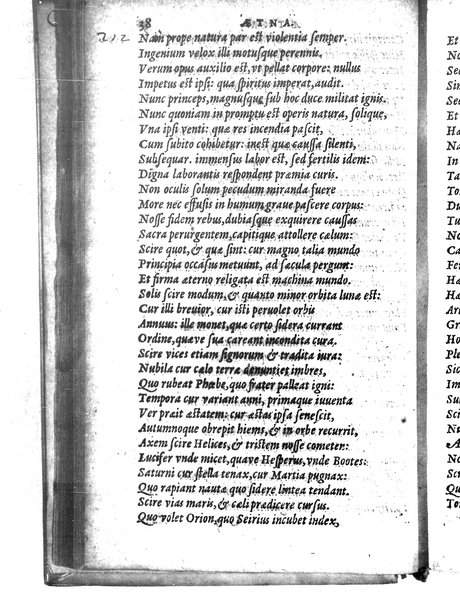 38 ÆTNA.
212
Nam prope natura par est violentia semper.
Ingenium velox illi motusque perennis,
Verum opus auxilio est, vt pellat corpore: nullus
Impetus est ipsi: qua spiritus imperat, audit.
Nunc princeps, magnusque sub hoc duce militat ignis.
Nunc quoniam in promptu est operis natura, solique,
Vna ipsi venti: quæ res incendia pascit,
Cum subito cohibetur: inest quæ caussa silenti,
Subsequar. immensus labor est, sed fertilis idem:
Digna laborantis respondent præmia curis.
Non oculis solum pecudum miranda fuere
More nec effusis in humum graue pascere corpus:
Nosse fidem rebus, dubiasque exquirere caussas
Sacra perurgentem, capitique attollere cælum:
Scire quot, & quæ sint: cur magno talia mundo
Principia occasus metuunt, ad sæcula pergunt:
Et firma æterno religata est machina mundo.
Solis scire modum, & quanto minor orbita lunæ est:
Cur illi breuior, cur isti peruolet orbis
Annuus: ille monet, qua certo sidera currant
Ordine, quæve sua careant incondita cura,
Scire vices etiam signorum & tradita iura:
Nubila cur cælo terræ denuntiet imbres,
Quo rubeat Phœbe, quo frater palleat igni:
Tempora cur variant anni, primaque iuuenta
Ver præit æstatem: cur æstas ipsa senescit,
Autumnoque obrepit hiems, & in orbe recurrit,
Axem scire Helices, & tristem nosse cometen:
Lucifer vnde micet, quave Hesperus, vnde Bootes:
Saturni cur stella tenax, cur Martia pugnax:
Quo rapiant nautæ quo sidere lintea tendant.
Scire vias maris, & cæli prædicere cursus.
Quo volet Orion, quo Seirius incubet index,